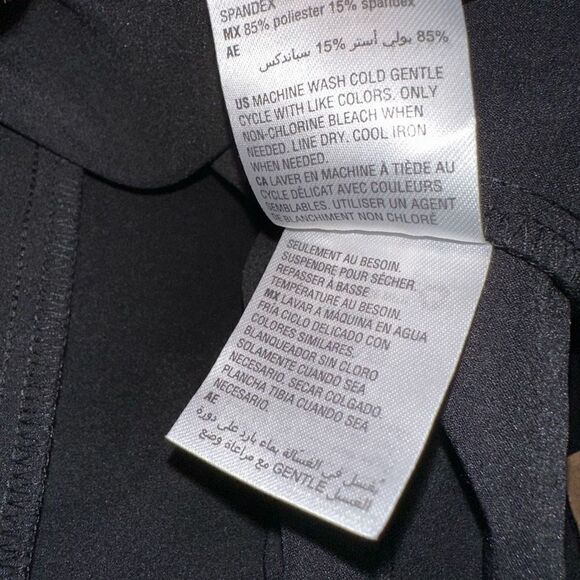 SPANDEX
MX 85% poliester 15% spandex
AE
85% بولي أستر 15% سباندكس
US MACHINE WASH COLD GENTLE
CYCLE WITH LIKE COLORS. ONLY
NON-CHLORINE BLEACH WHEN
NEEDED. LINE DRY. COOL IRON
WHEN NEEDED.
CA LAVER EN MACHINE À TIÈDE AU
CYCLE DÉLICAT AVEC COULEURS
SEMBLABLES. UTILISER UN AGENT
DE BLANCHIMENT NON CHLORÉ
SEULEMENT AU BESOIN.
SUSPENDRE POUR SÉCHER.
REPASSER À BASSE
TEMPÉRATURE AU BESOIN.
MX LAVAR A MÁQUINA EN AGUA
FRÍA CICLO DELICADO CON
COLORES SIMILARES.
BLANQUEADOR SIN CLORO
SOLAMENTE CUANDO SEA
NECESARIO. SECAR COLGADO.
PLANCHA TIBIA CUANDO SEA
NECESARIO.
AE
يغسل في الغسالة بماء بارد على دورة
الغسيل GENTLE مع مراعاة وضع